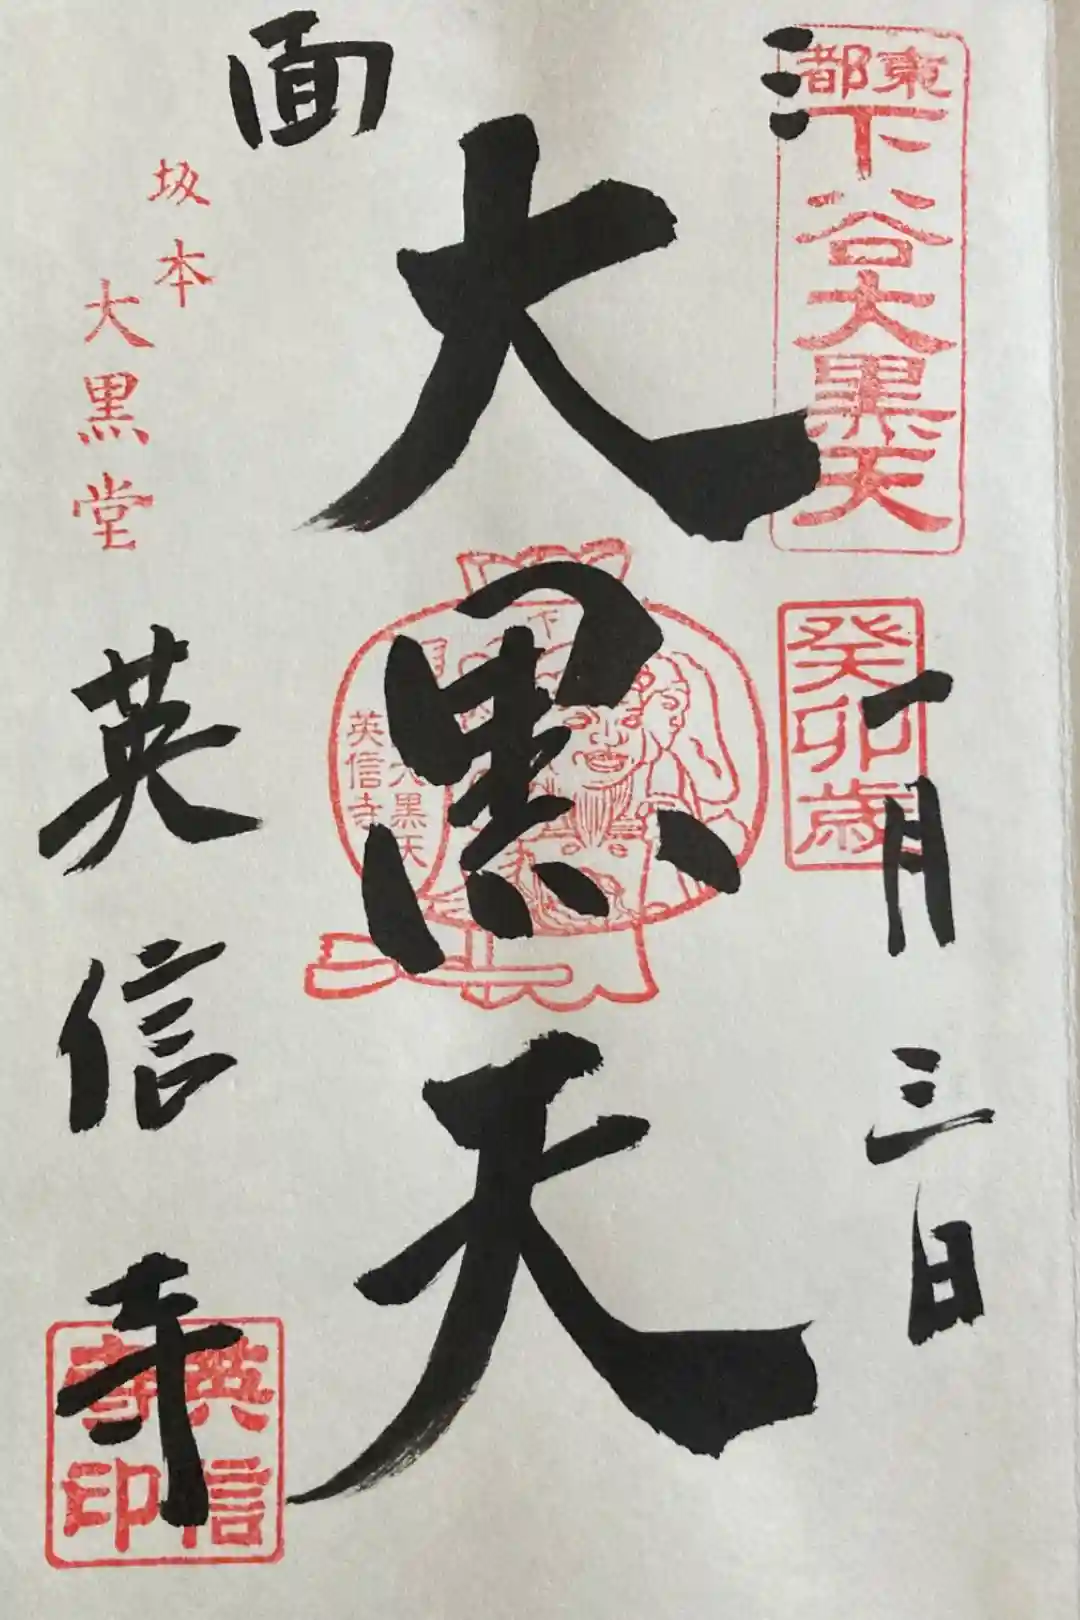 東都
下谷大黒天
癸卯歳
一月三日
三面
大黒天
下
大黒天
英信寺
坂本
大黒堂
英信寺
英信寺印